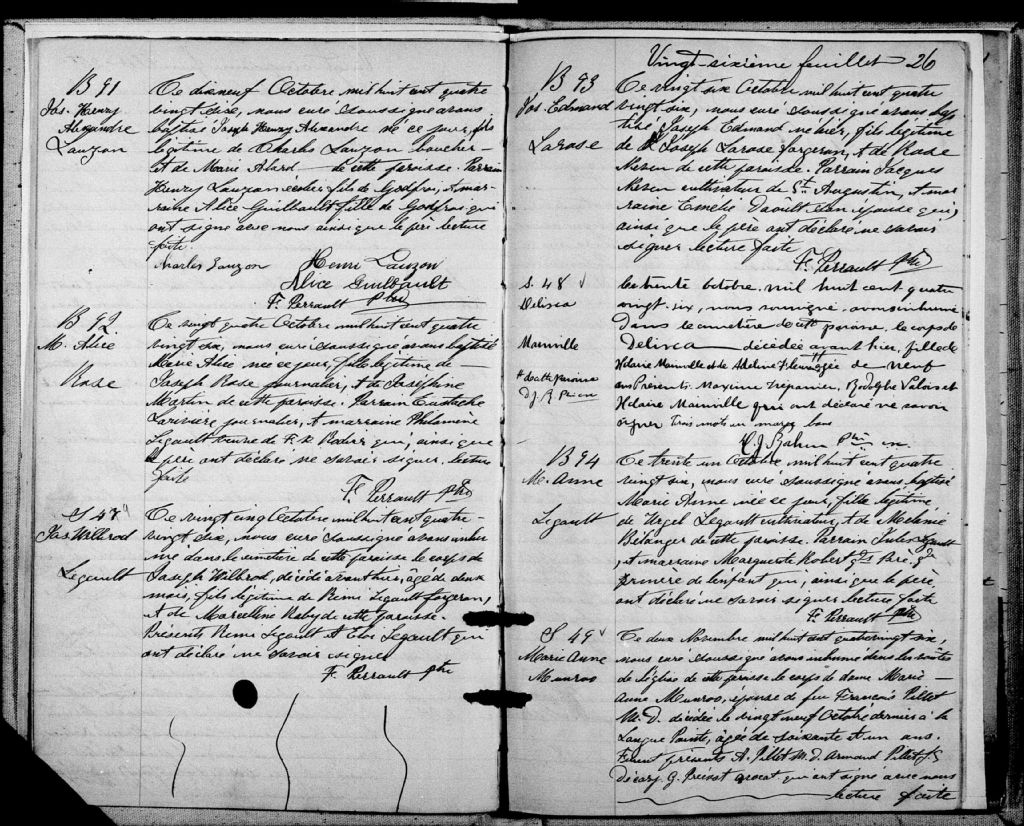 B 91
Jos. Henry
Alexandre
Lauzon
Ce dixneuf Octobre mil huit cent quatre
vingt six, nous curé soussigné avons
baptisé Joseph Henry Alexandre né ce jour, fils
légitime de Charles Lauzon boucher
et de Marie Alard de cette paroisse. Parrain
Henry Lauzon écolier fils de Godfroi, & mar-
raine Alice Guilbault fille de Godfroi qui
ont signé avec nous ainsi que le père lecture
faite.
Charles Lauzon
Henri Lauzon
Alice Guilbault
F. Perrault Ptre
B 92
M. Alice
Rose
Ce vingt quatre Octobre mil huit cent quatre
vingt six, nous curé soussigné avons baptisé
Marie Alice née ce jour, fille légitime de
Joseph Rose journalier, & de Joséphine
Martin de cette paroisse. Parrain Eustache
Larivière journalier, & marraine Philomène
Legault veuve de F. X. qui, ainsi que
le père ont déclaré ne savoir signer. lecture
faite
F. Perrault Ptre
S 47
Jos Wilbrod
Legault
Ce vingt cinq Octobre mil huit cent quatre
vingt six, nous curé soussigné avons inhu
mé dans le cimetière de cette paroisse le corps de
Joseph Wilbrod, décédé avant hier, âgé de deux
mois, fils légitime de Rémi Legault forgeron,
et de Marcelline Raby de cette paroisse.
Présents Rémi Legault et Legault qui
ont déclaré ne savoir signer
F. Perrault Ptre
Vingt-sixième feuillet 26
B 93
Jos. Edmond
Larose
Ce vingt six Octobre mil huit cent quatre
vingt six, nous curé soussigné avons bap
tisé Joseph Edmond né hier, fils légitime
de Joseph Larose forgeron, & de Rose
de cette paroisse. Parrain Jacques
cultivateur de St. Augustin, & mar
raine Emélie Daoult son épouse qui,
ainsi que le père ont déclaré ne savoir
signer lecture faite
F. Perrault Ptre
S. 48
Delisca
Mainville
# de cette paroisse
Les trente octobre mil huit cent quatre
vingt-six, nous soussigné avons inhumé
dans le cimetière de cette paroisse, le corps de
Delisca décédée avant hier, fille de
Hilaire Mainville et de Adeline # âgée de neuf
ans Présents Maxime Trépanier, Rodolphe Valois et
Hilaire Mainville qui ont déclaré ne savoir
signer Trois mots en marge bons
Ptre
B 94
M. Anne
Legault
Ce trente un Octobre mil huit cent quatre
vingt six, nous curé soussigné avons baptisé
Marie Anne née ce jour, fille légitime
de Urgel Legault cultivateur, & de Mélanie
Bélanger de cette paroisse. Parrain Jules Legault
, et marraine Marguerite Robert gd. Père, gd.
mère de l'enfant qui, ainsi que le père,
ont déclaré ne savoir signer lecture faite
F. Perrault Ptre
S 49
Marie Anne
Munroo
Ce deux Novembre mil huit cent quatre vingt six,
nous curé soussigné avons inhumé dans les voûtes
de l'église de cette paroisse le corps de dame Marie
Anne Munroo, épouse de feu François Pillet
M. D. décédée le vingt neuf Octobre dernier à la
Longue Pointe, âgée de soixante et un ans.
Furent présents A. Pillet M. D. Armand Pillet
Décary G. Préfost avocat qui ont signé avec nous
lecture faite